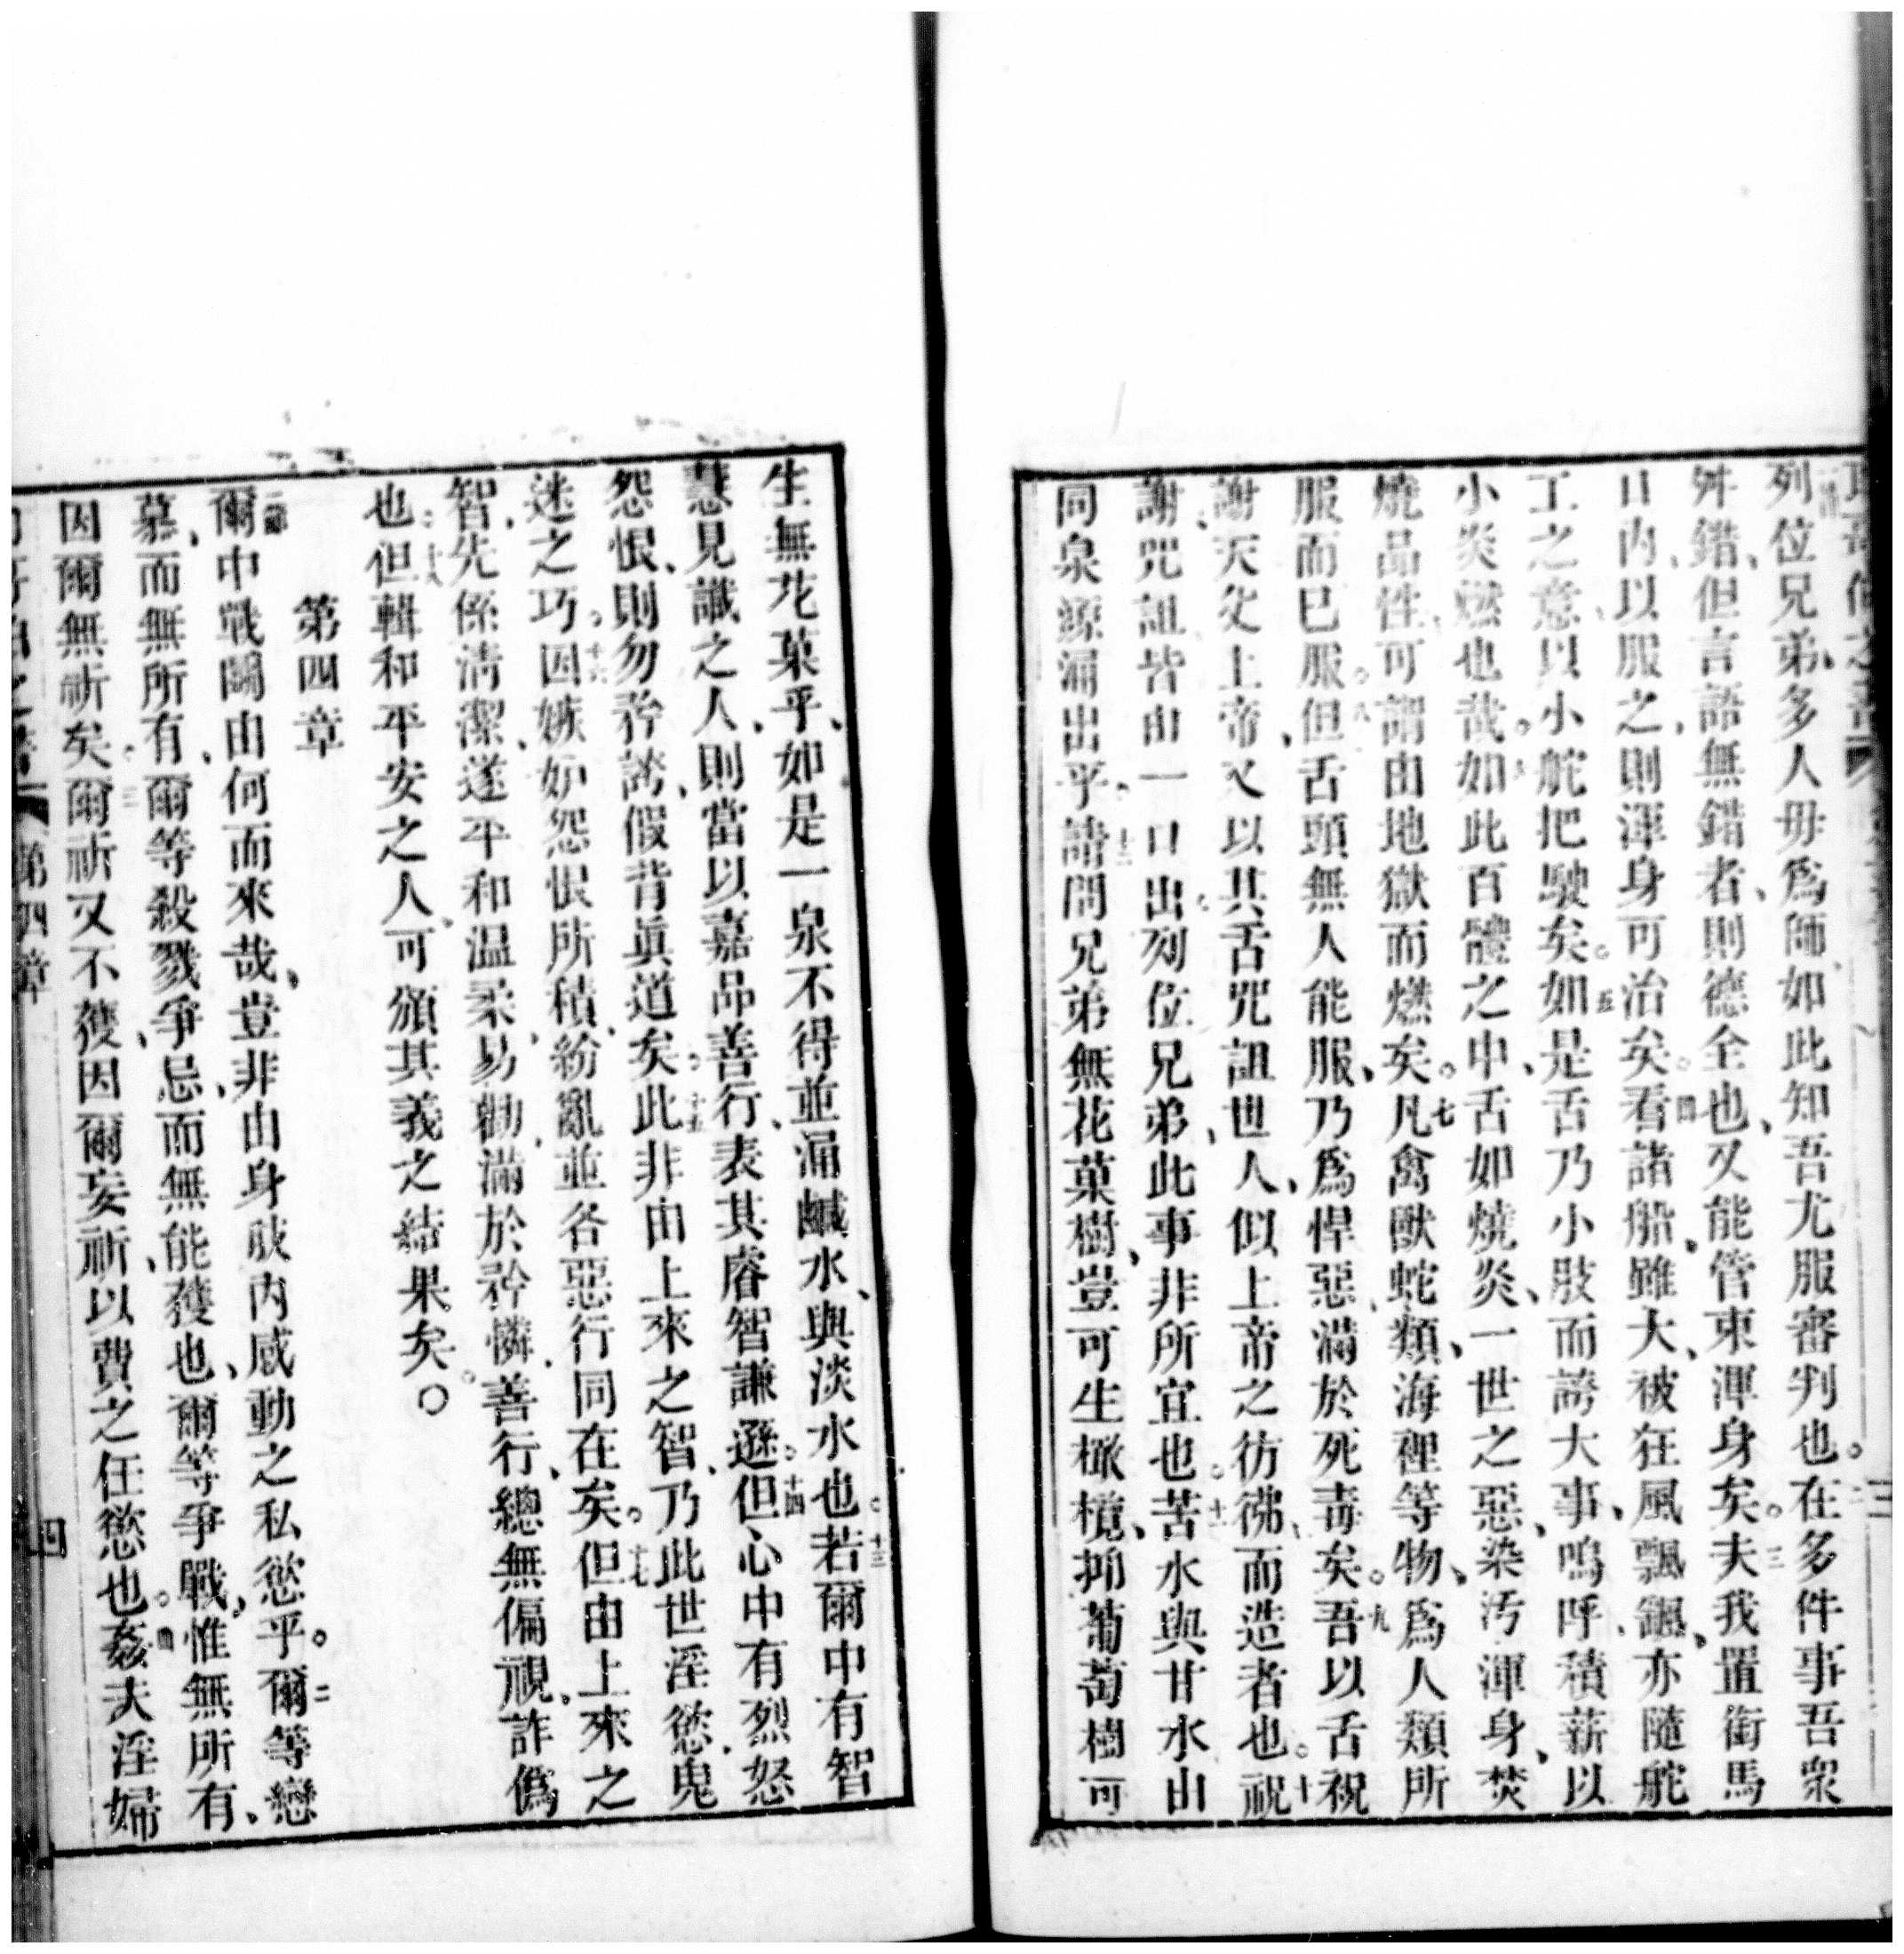 列位兄弟、多人毋爲師、如此知吾尤服審判也。二在多件事吾衆
舛錯、但言語無錯者、則德全也、又能管束渾身矣。三夫我置銜馬
口內、以服之、則渾身可治矣。四看諸船、雖大、被狂風飄颻、亦隨舵
工之意、以小舵把駛矣。五如是舌乃小肢而誇大事、嗚呼積薪以
小炎燃也哉。六如此百體之中、舌如燒炎、一世之惡、染汚渾身、焚
燒品性、可謂由地獄而燃矣。七凡禽獸蛇類、海裡等物、爲人類所
服而已服。八但舌頭無人能服、乃爲悍惡、滿於死毒矣。九吾以舌祝
謝天父上帝、又以其舌咒詛世人、似上帝之彷彿而造者也。十祝
謝、咒詛皆由一口出。列位兄弟、此事非所宜也。十一苦水與甘水由
同泉源漏出乎。十二請問兄弟無花菓樹、豈可生橄欖、抑葡萄樹可
生無花菓乎、如是一泉不得並漏鹹水、與淡水也。十三若爾中有智
慧見識之人、則當以嘉品善行、表其睿智謙遜。十四但心中有烈怒
怨恨、則勿矜誇、假背眞道矣。十五此非由上來之智、乃此世淫慾、鬼
迷之巧。十六因嫉妒怨恨所積、紛亂並各惡行同在矣。十七但由上來之
智、先係清潔、遂平和温柔、易勸、滿於矜憐、善行、總無偏視、詐僞
也。十八但輯和平安之人、可頒其義之結果矣。〇
第四章
一節爾中戰鬪由何而來哉、豈非由身肢內感動之私慾乎。二爾等戀
慕、而無所有、爾等殺戮爭忌、而無能獲也、爾等爭戰、惟無所有、
因爾無祈矣。三爾祈又不獲、因爾妄祈、以費之任慾也。四姦夫淫婦
第四章
四